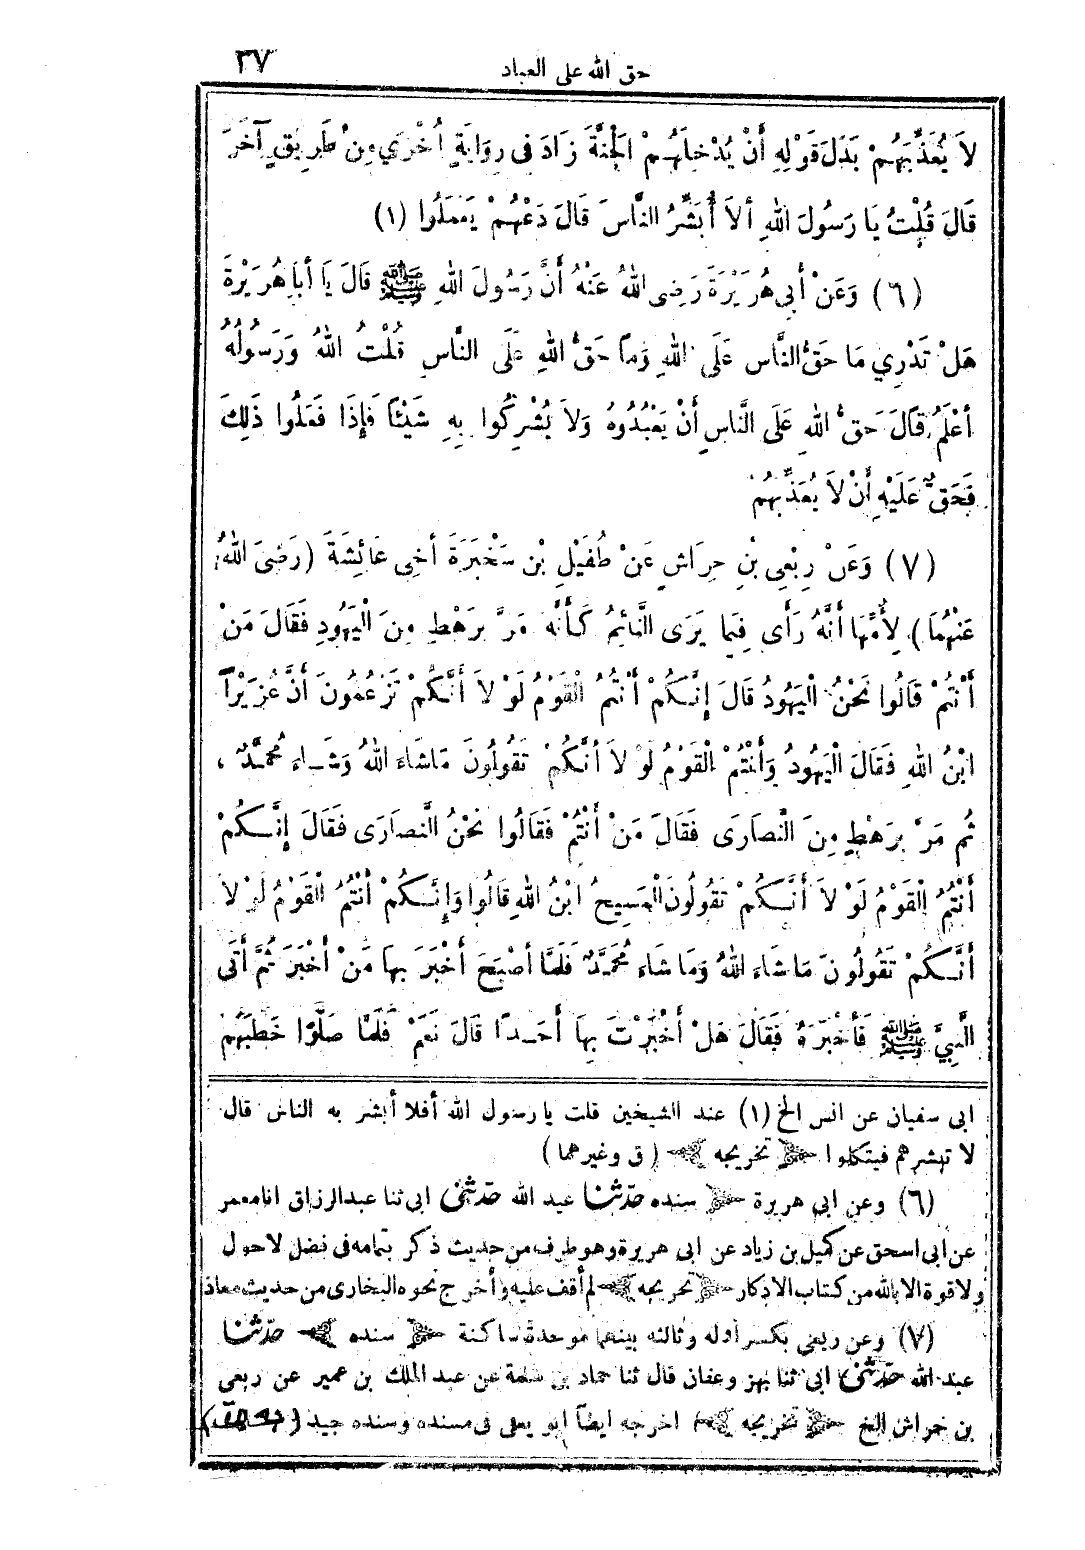 حق الله على العباد
٣٧
لاَ يُعَذِّبَهُمْ بَدَلَ قَوْلِهِ أَنْ يُدْخِلَهُمْ الْجَنَّةَ زَادَ فِى رِوَايَةٍ أُخْرَي مِنْ طَرِيقٍ آخَرَ
قَالَ قُلْتُ يَا رَسُولَ اللهِ أَلاَ أُبَشِّرُ النَّاسَ قَالَ دَعْهُمْ يَعْمَلُوا (١)
(٦) وَعَنْ أَبِي هُرَيْرَةَ رَضِى اللهُ عَنْهُ أَنَّ رَسُولَ اللهِ ﷺ قَالَ يَا أَبَا هُرَيْرَةَ
هَلْ تَدْرِي مَا حَقُّ النَّاسِ عَلَى اللهِ وَمَا حَقُّ اللهِ عَلَى النَّاسِ قُلْتُ اللهُ وَرَسُولُهُ
أَعْلَمُ قَالَ حَقُّ اللهِ عَلَى النَّاسِ أَنْ يَعْبُدُوهُ وَلاَ يُشْرِكُوا بِهِ شَيْئًا فَإِذَا فَعَلُوا ذَلِكَ
فَحَقٌّ عَلَيْهِ أَنْ لاَ يُعَذِّبَهُمْ
(٧) وَعَنْ رِبْعِى بْنِ حِرَاشٍ عَنْ طُفَيْلِ بْنِ سَخْبَرَةَ أَخِى عَائِشَةَ (رَضِىَ اللهُ
عَنْهُمَا) لِأُمِّهَا أَنَّهُ رَأَى فِيمَا يَرَى النَّائِمُ كَأَنَّهُ مَرَّ بِرَهْطٍ مِنَ الْيَهُودِ فَقَالَ مَنْ
أَنْتُمْ قَالُوا نَحْنُ الْيَهُودُ قَالَ إِنَّكُمْ أَنْتُمُ الْقَوْمُ لَوْ لاَ أَنَّكُمْ تَزْعُمُونَ أَنَّ عُزَيْرًا
ابْنُ اللهِ فَقَالَ الْيَهُودُ وَأَنْتُمْ الْقَوْمُ لَوْ لاَ أَنَّكُمْ تَقُولُونَ مَا شَاءَ اللهُ وَشَاءَ مُحَمَّدٌ ،
ثُم مَرَّ بِرَهْطٍ مِنَ النَّصَارَى فَقَالَ مَنْ أَنْتُمْ فَقَالُوا نَحْنُ النَّصَارَى فَقَالَ إِنَّكُمْ
أَنْتُمُ الْقَوْمُ لَوْ لاَ أَنَّكُمْ تَقُولُونَ الْمَسِيحُ ابْنُ اللهِ قَالُوا وَإِنَّكُمْ أَنْتُمُ الْقَوْمُ لَوْ لاَ
أَنَّكُمْ تَقُولُونَ مَا شَاءَ اللهُ وَمَا شَاءَ مُحَمَّدٌ فَلَمَّا أَصْبَحَ أَخْبَرَ بِهَا مَنْ أَخْبَرَ ثُمَّ أَتَى
النَّبِيَّ ﷺ فَأَخْبَرَهُ فَقَالَ هَلْ أَخْبَرْتَ بِهَا أَحَدًا قَالَ نَعَمْ فَلَمَّا صَلَّوْا خَطَبَهُمْ
ابى سفيان عن انس الخ (١) عند الشيخين قلت يا رسول الله أفلا أبشر به الناس قال
لا تبشرهم فيتكلوا ﴿ تخريجه ﴾ (ق وغيرهما)
(٦) وعن ابى هريرة ﴿ سنده حدثنا عبد الله حدثنى ابى ثنا عبدالرزاق انا معمر
عن ابى اسحق عن كميل بن زياد عن ابى هريرة وهو طرف من حديث ذكر بتمامه فى فضل لا حول
ولا قوة الا بالله من كتاب الاذكار ﴿ تخريجه ﴾ لم أقف عليه وأخرج نحوه البخارى من حديث معاذ
(٧) وعن ربعى بكسر أوله وثالثه بينهما موحدة ساكنة ﴿ سنده ﴾ حدثنا
عبد الله حدثنى ابى ثنا بهز وعفان قال ثنا حماد بن سلمة عن عبد الملك بن عمير عن ربعى
بن حراش الخ ﴿ تخريجه ﴾ اخرجه ايضاً ابو يعلى فى مسنده وسنده جيد